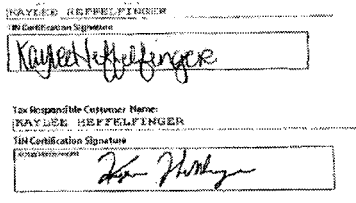 KAYLEE HEFFELFINGER
TIN Certification Signature
Kaylee Heffelfinger
Tax Responsible Customer Name:
KAYLEE HEFFELFINGER
TIN Certification Signature